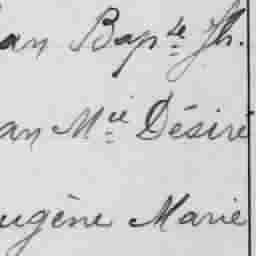 ean Bap.te Jh.
an M.ie Désiré
ugène Marie